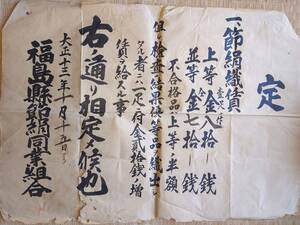 定
一、節絹織賃
上等 壹疋ニ付 金八拾一銭
並等 仝 金七拾一銭
不合格品ハ上等ノ半額
但シ検査ノ結果優等品ヲ織出シ
タル者ニハ一疋ニ付金貳拾銭ノ増
賃ヲ給スル事
右之通リ相定メ候也
大正十三年十月十五日ヨリ
福島縣 同業組合